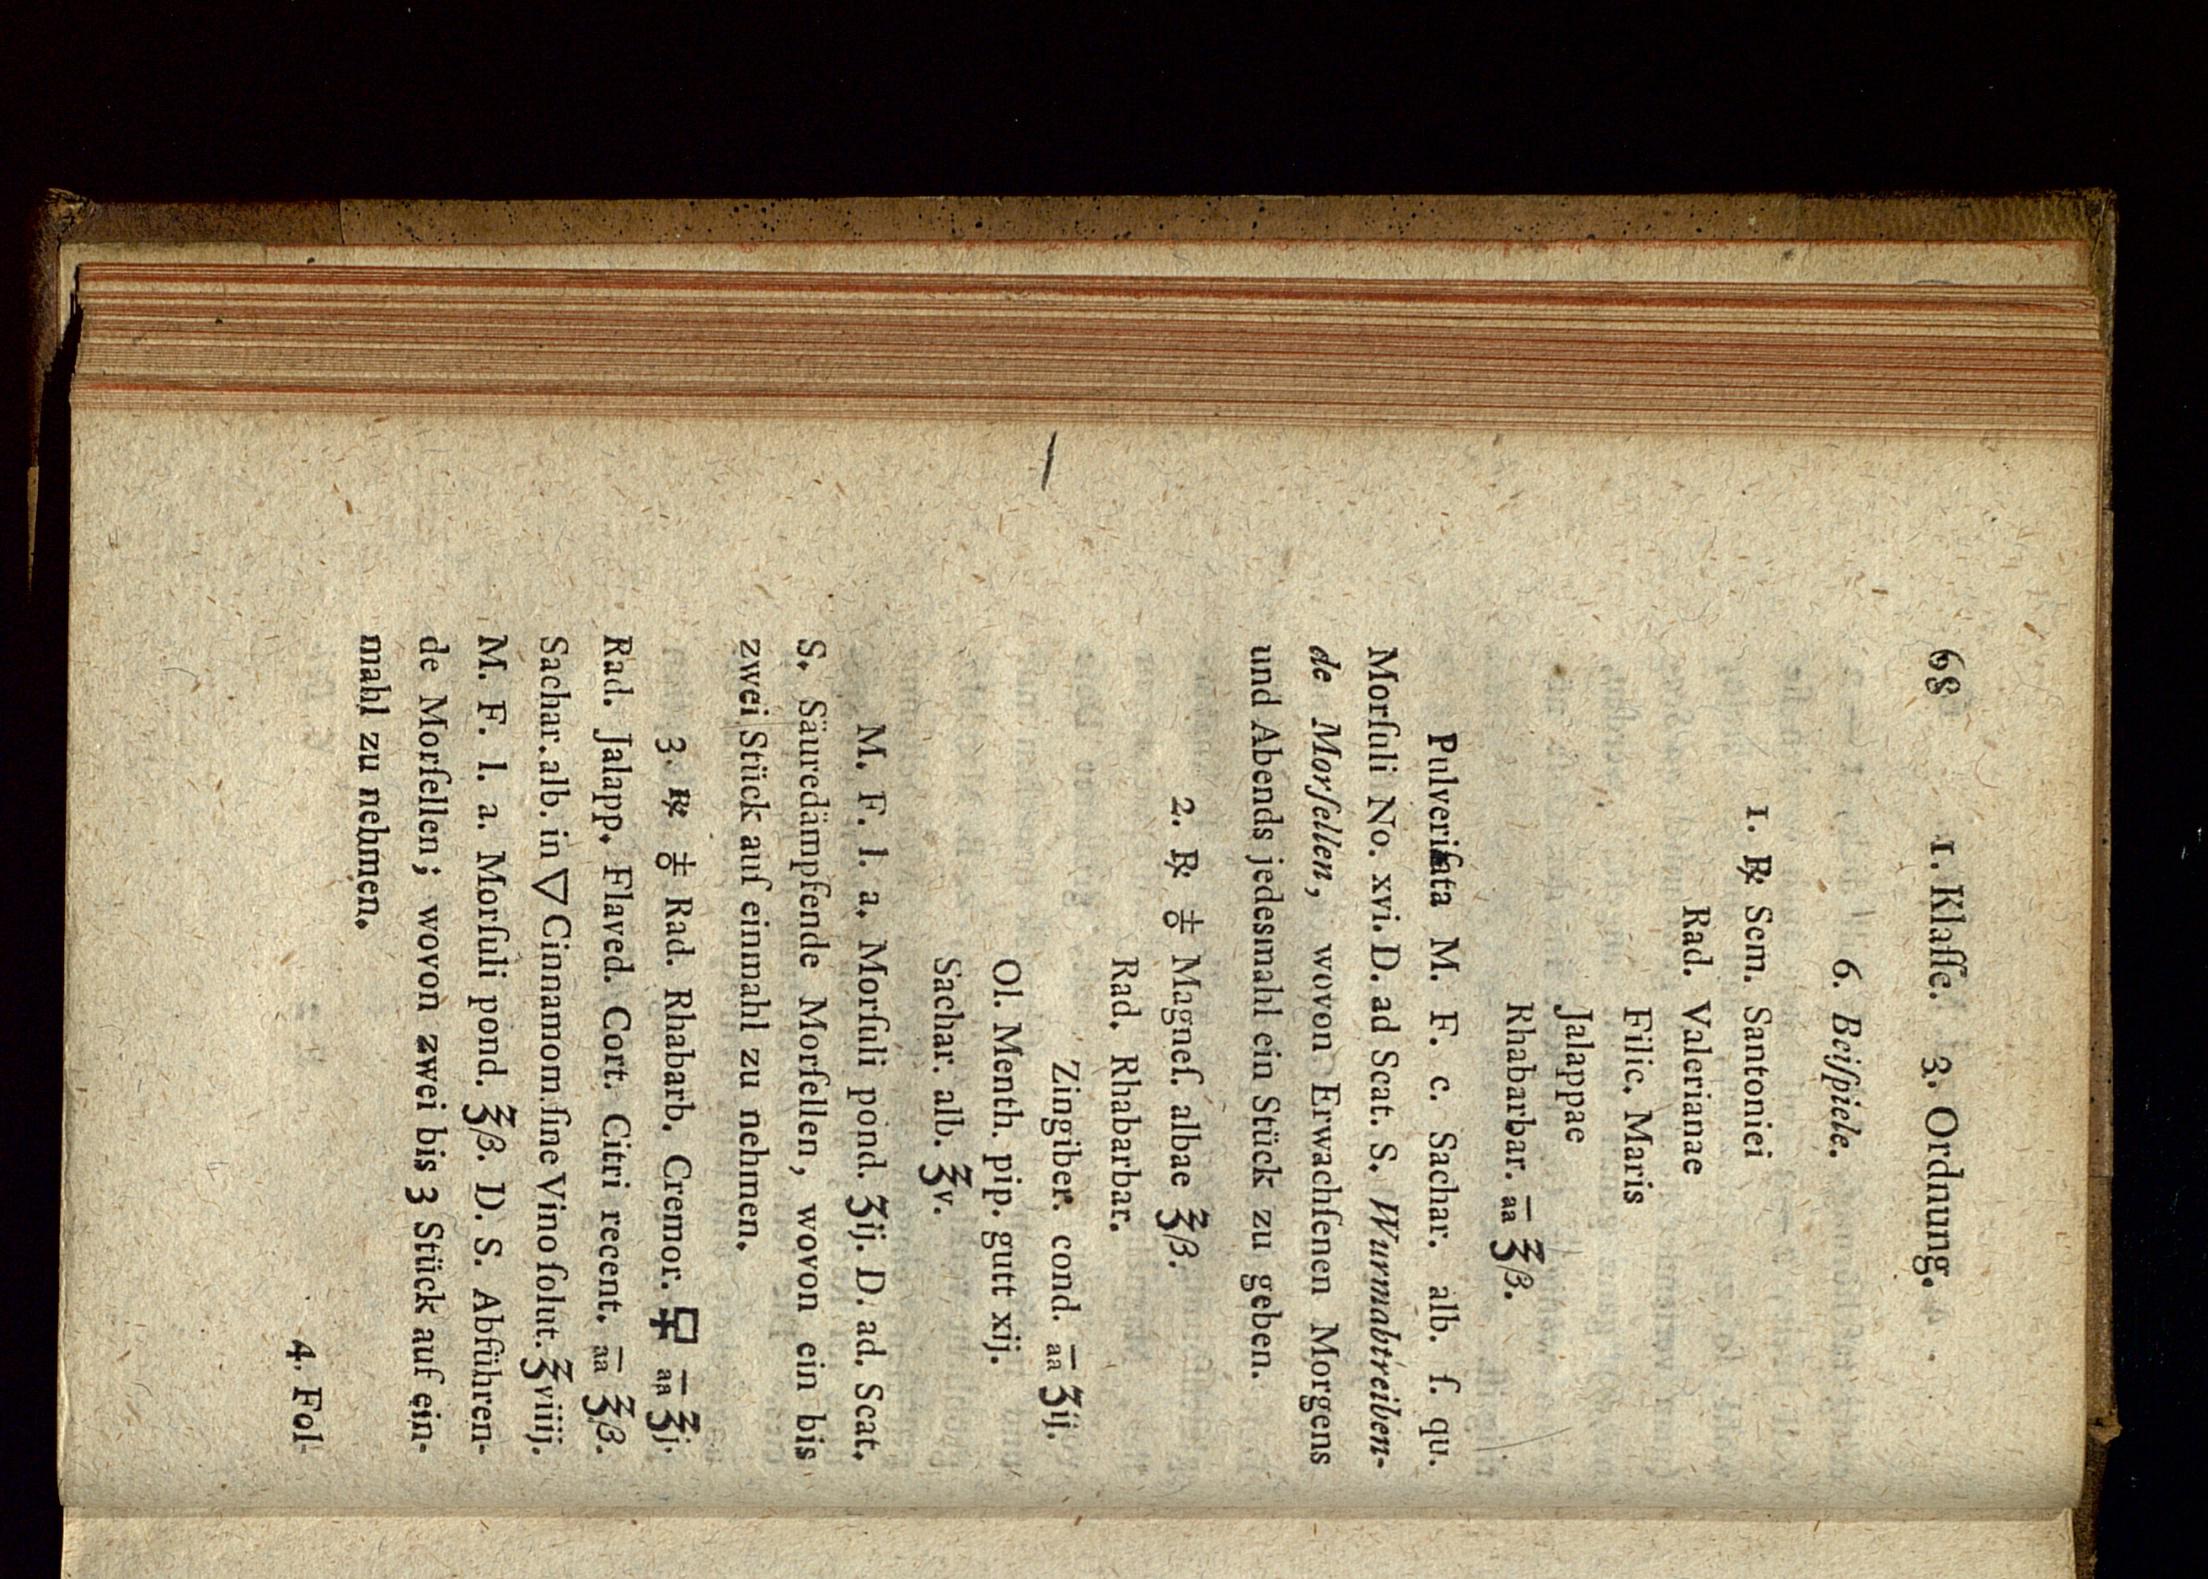 68 1. Klaſſe. 3. Ordnung.
6. Beiſpiele.
1. ℞ Sem. Santoniei
Rad. Valerianae
Filic. Maris
Jalappae
Rhabarbar. a̅a̅ ℥β.
Pulveriſata M. F. c. Sachar. alb. ſ. qu.
Morſuli No. xvi. D. ad Scat. S. Wurmabtreiben-
de Morſellen, wovon Erwachſenen Morgens
und Abends jedesmahl ein Stück zu geben.
2. ℞ ♁ Magneſ. albae ℥β.
Rad. Rhabarbar.
Zingiber. cond. a̅a̅ ʒij.
Ol. Menth. pip. gutt xij.
Sachar. alb. ℥v.
M. F. l. a. Morſuli pond. ʒij. D. ad. Scat.
S. Säuredämpfende Morſellen, wovon ein bis
zwei Stück auf einmahl zu nehmen.
3. ℞ ♁ Rad. Rhabarb. Cremor. 🜿 a̅a̅ ℥j.
Rad. Jalapp. Flaved. Cort. Citri recent. a̅a̅ ℥β.
Sachar. alb. in ▽ Cinnamom. ſine Vino ſolut. ℥viiij.
M. F. l. a. Morſuli pond. ℥β. D. S. Abführen-
de Morſellen; wovon zwei bis 3 Stück auf ein-
mahl zu nehmen.
4. Fol-